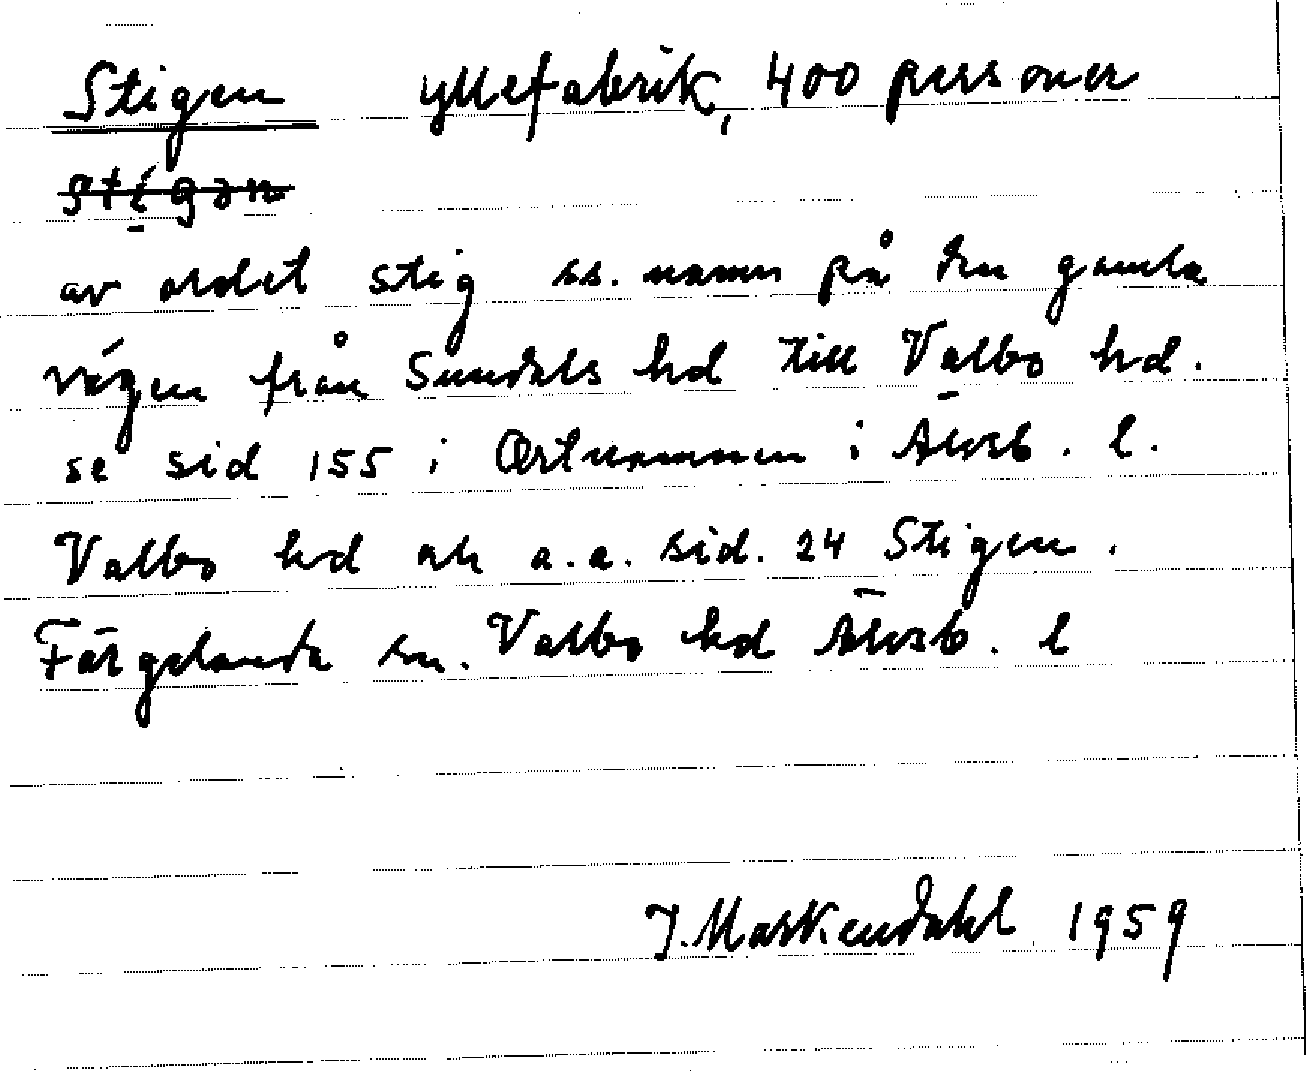 Stigen yllefabrik, 400 personer
stigən
av ordet stig ss. namn på den gamla
vägen från Sundals hd till Valbo hd.
se sid 155 i Ortnamnen i Älvsb. l.
Valbo hd ok a.a. sid. 24 Stigen.
Färgelanda sn. Valbo hd Älvsb. l
J. Markendahl 1959